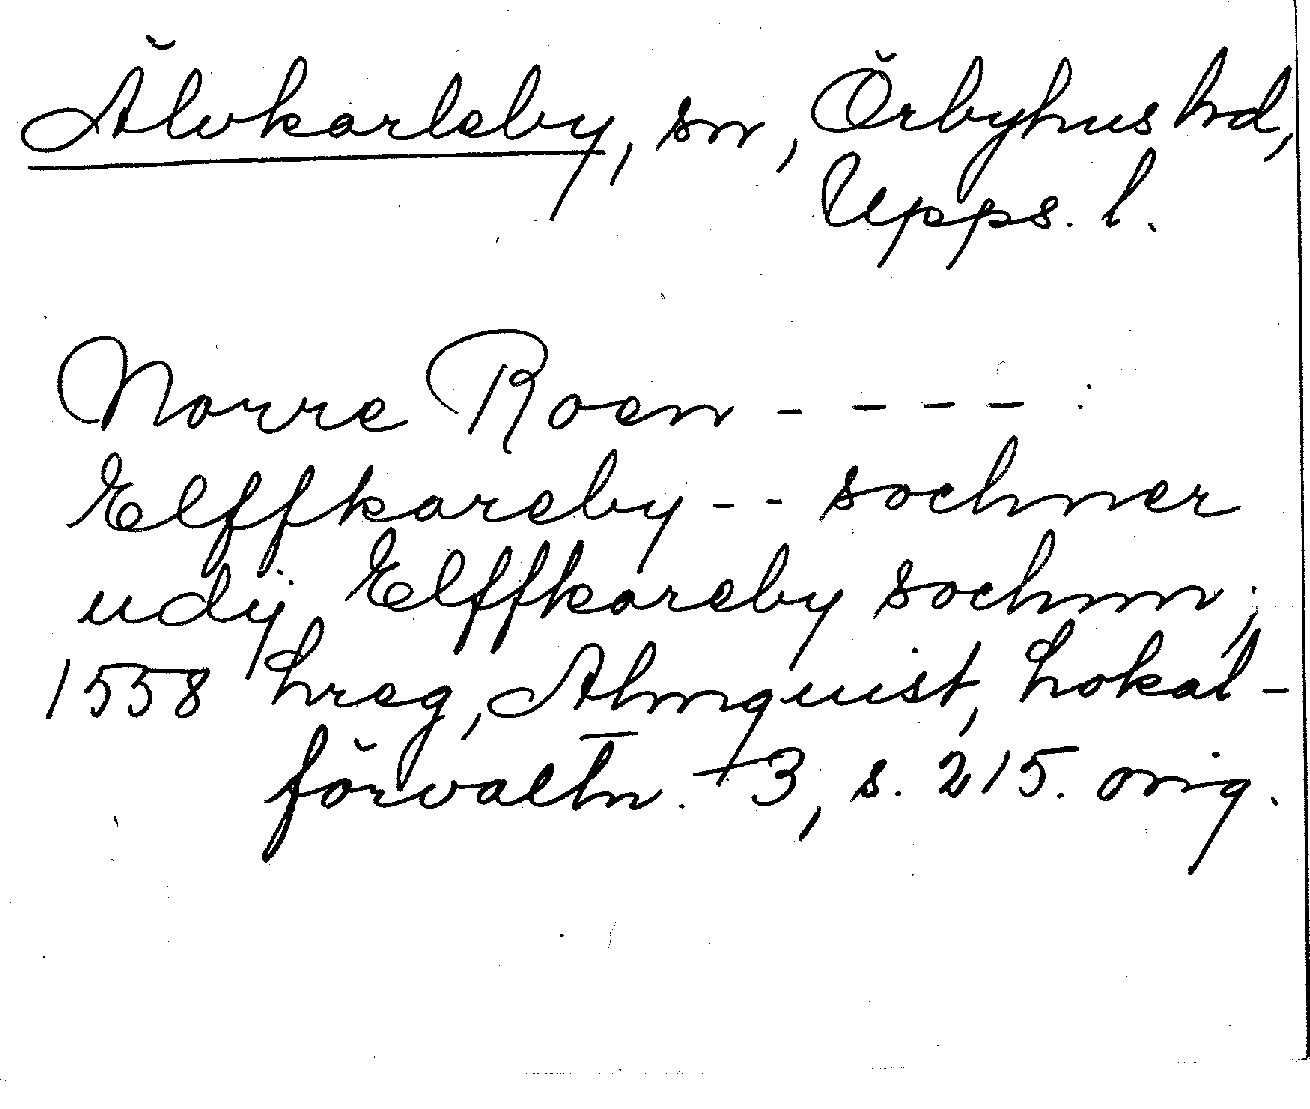 Älvkarleby, sn, Örbyhus hd,
Upps. l.
Norre Roen - - - -
Elffkareby - - sochner
udij Elffkareby sochnn;
1558 Lreg, Almquist, Lokal-
förvaltn. 3, s. 215. orig.